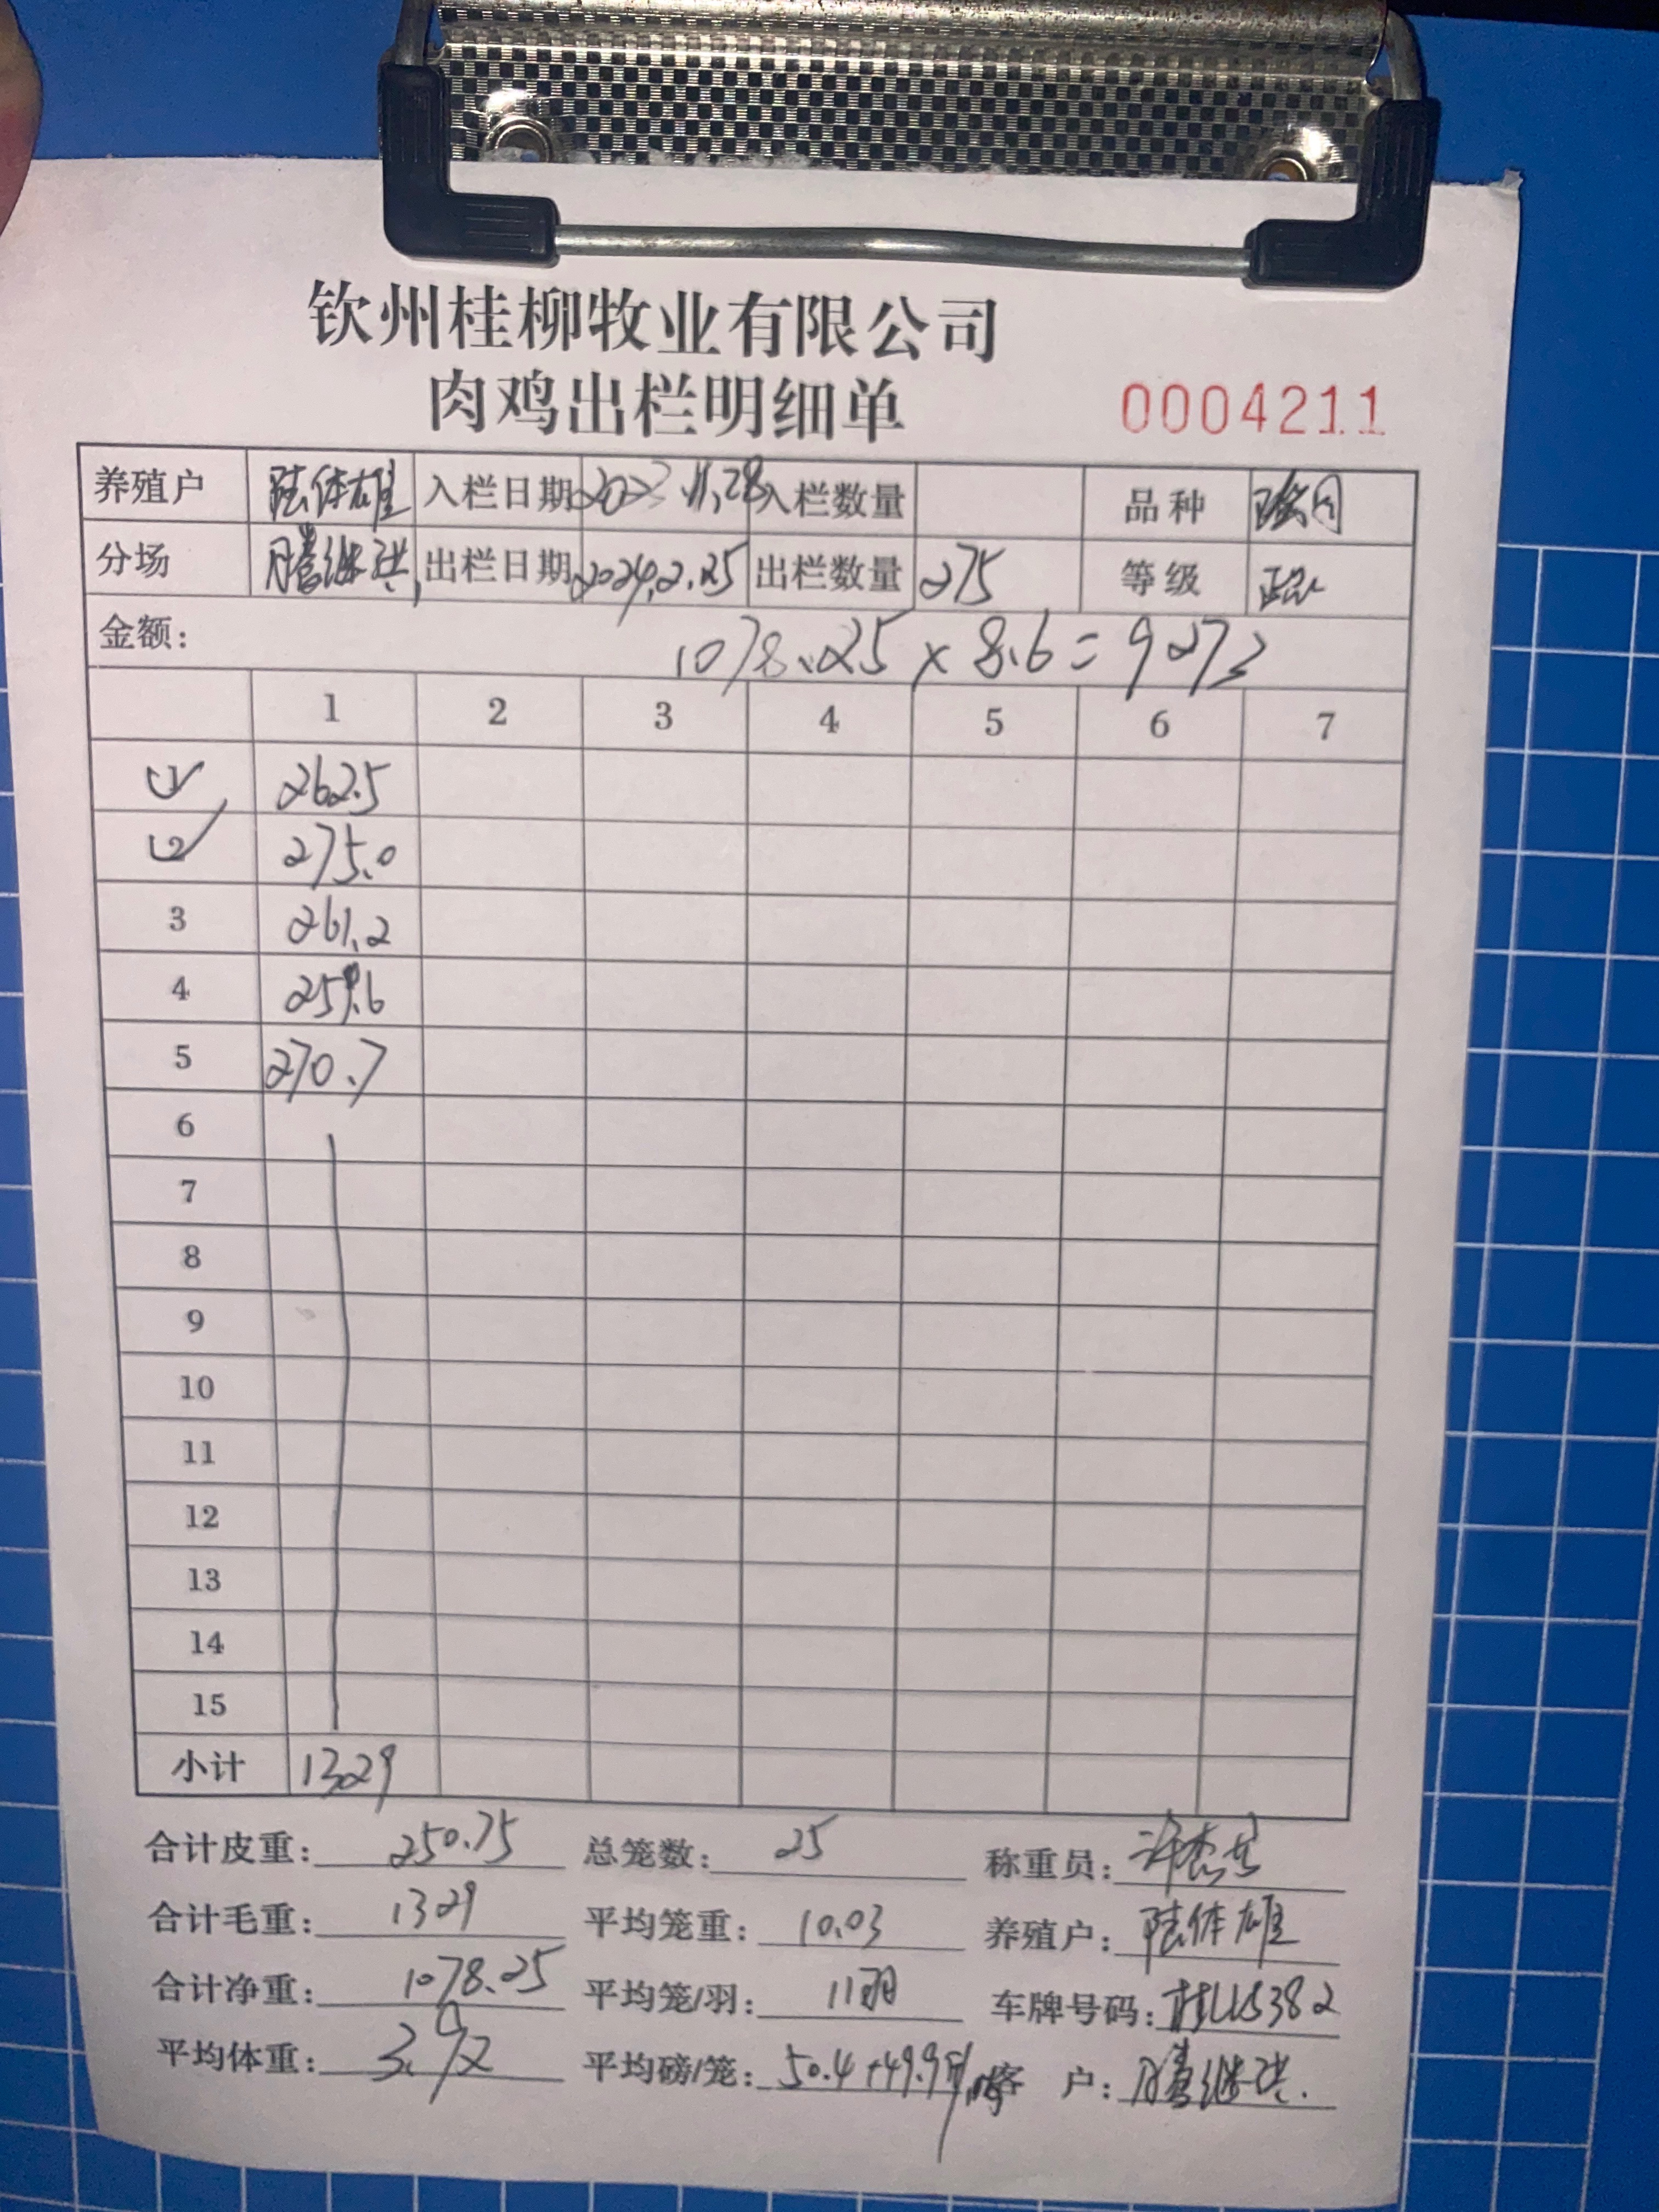 钦州桂柳牧业有限公司
肉鸡出栏明细单 0004211
养殖户 陆体雄 入栏日期 11.28 入栏数量 品种
分场 滕继洪 出栏日期 2024.2.25 出栏数量 275 等级 正品
金额: 1078.25 × 8.6 = 9273
1 2 3 4 5 6 7
1 262.5
2 275.0
3 261.2
4 259.6
5 270.7
6
7
8
9
10
11
12
13
14
15
小计 1329
合计皮重: 250.75 总笼数: 25 称重员:
合计毛重: 1329 平均笼重: 10.03 养殖户: 陆体雄
合计净重: 1078.25 平均笼/羽: 11羽 车牌号码:
平均体重: 3.92 平均磅/笼: 50.4+49.9 客 户: 滕继洪.